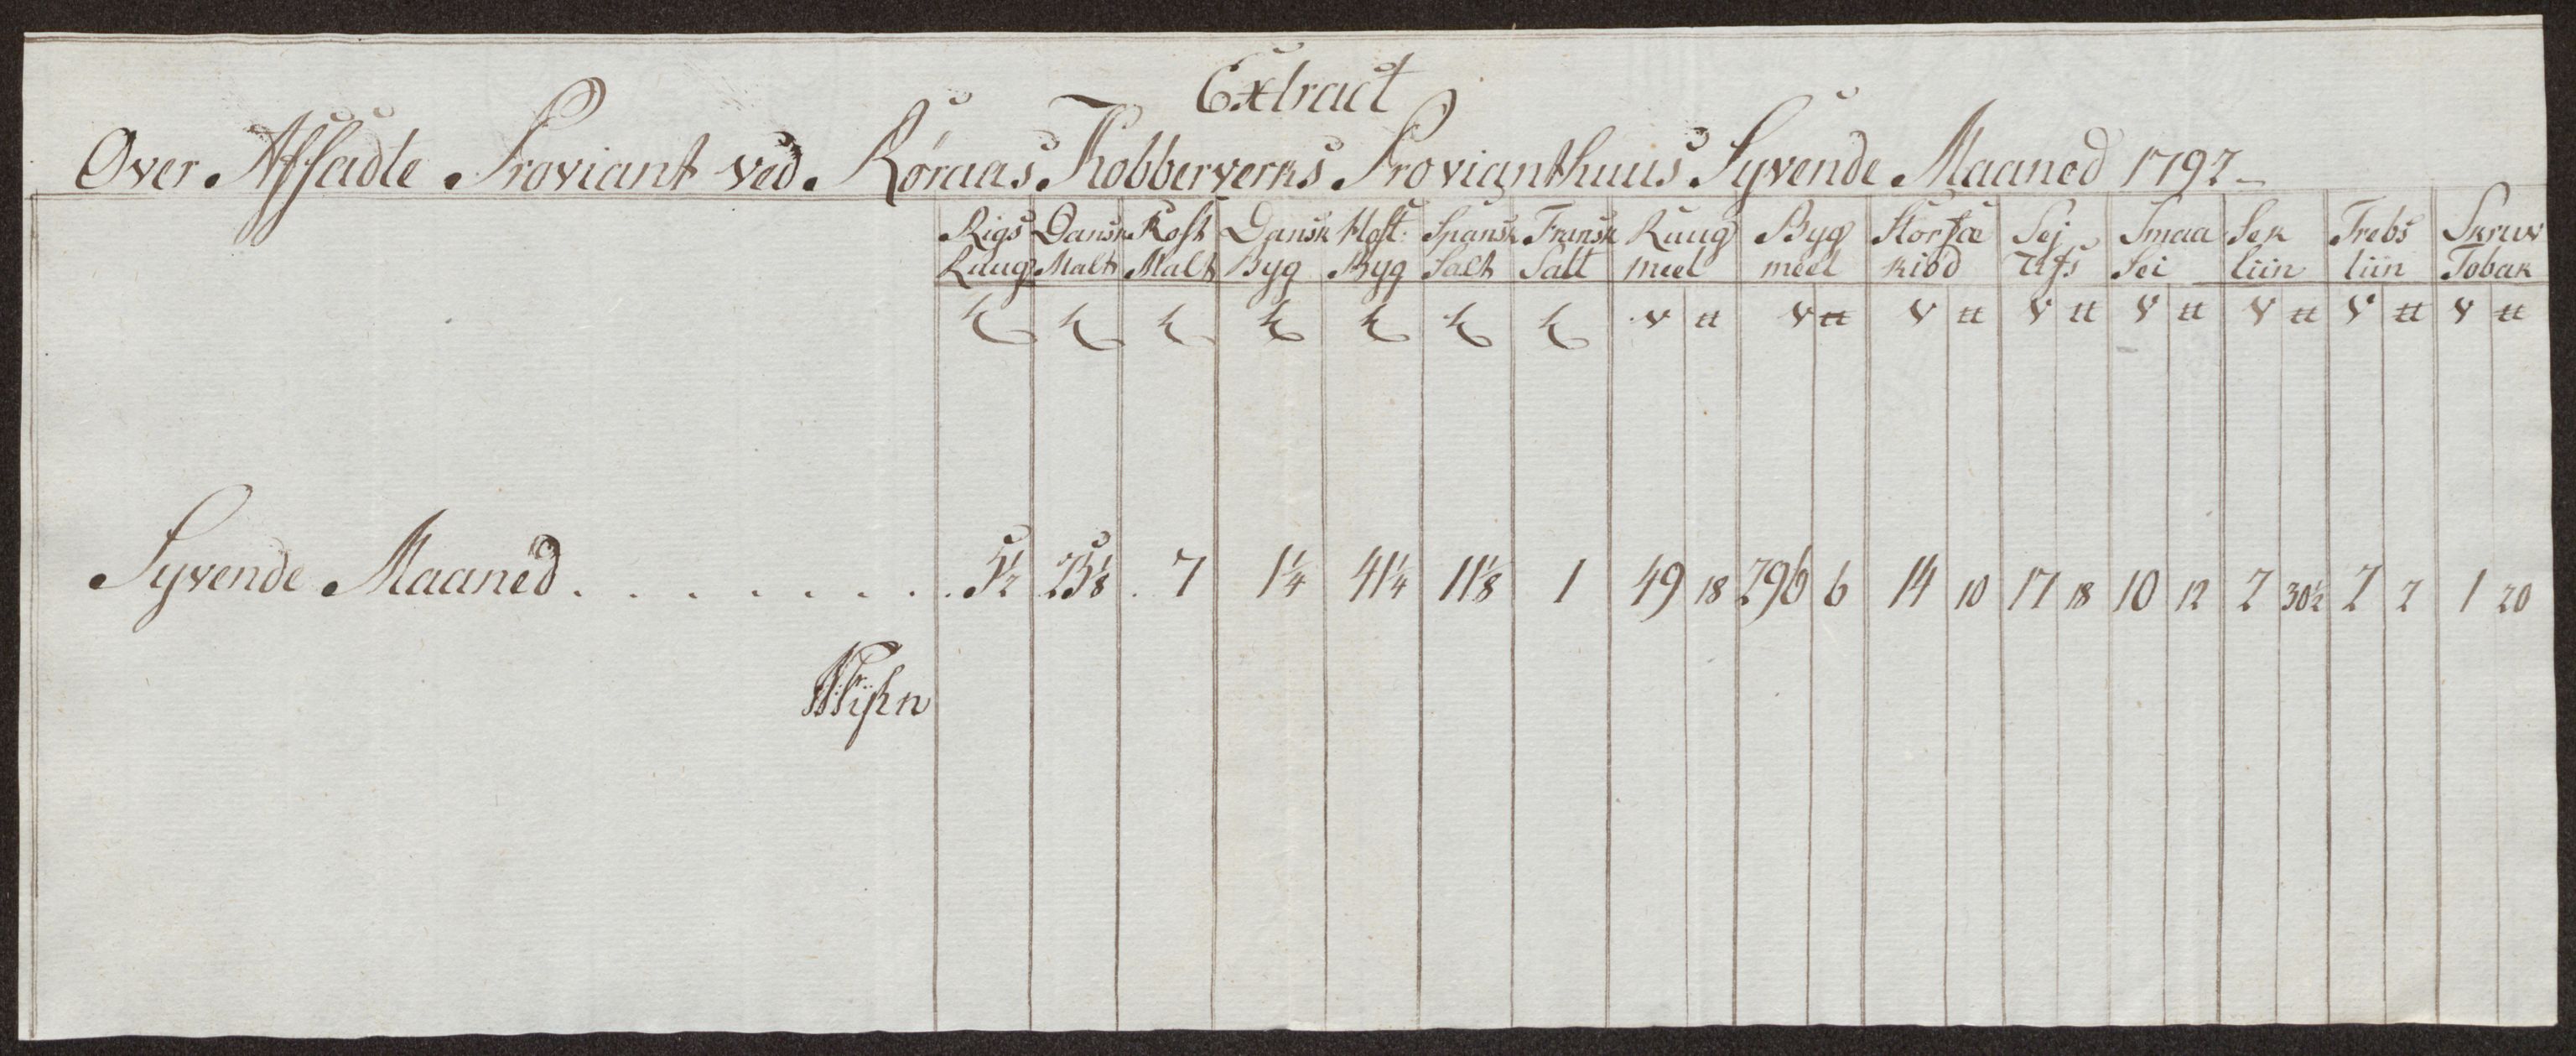 Extract
Over Afsadte Proviant ved Røraas Kobberverks Provianthuus Syvende Maaned 1792
Rigs Dansk Kost Dansk Host. Spansk Fransk Ruug Byg Storfæ Sej Smaa Sek Trebs Skruv
Ruug Malt Malt Byg Byg Salt Salt meel meel kiød Ufs Sei liin liin Tobak
V ℔ V ℔ V ℔ V ℔ V ℔ V ℔ V ℔ V ℔
Syvende Maaned . . . . . . . . 5½ 23⅛ 7 1¼ 41¼ 11⅛ 1 49 18 296 6 14 10 17 18 10 12 2 30½ 2 2 1 20